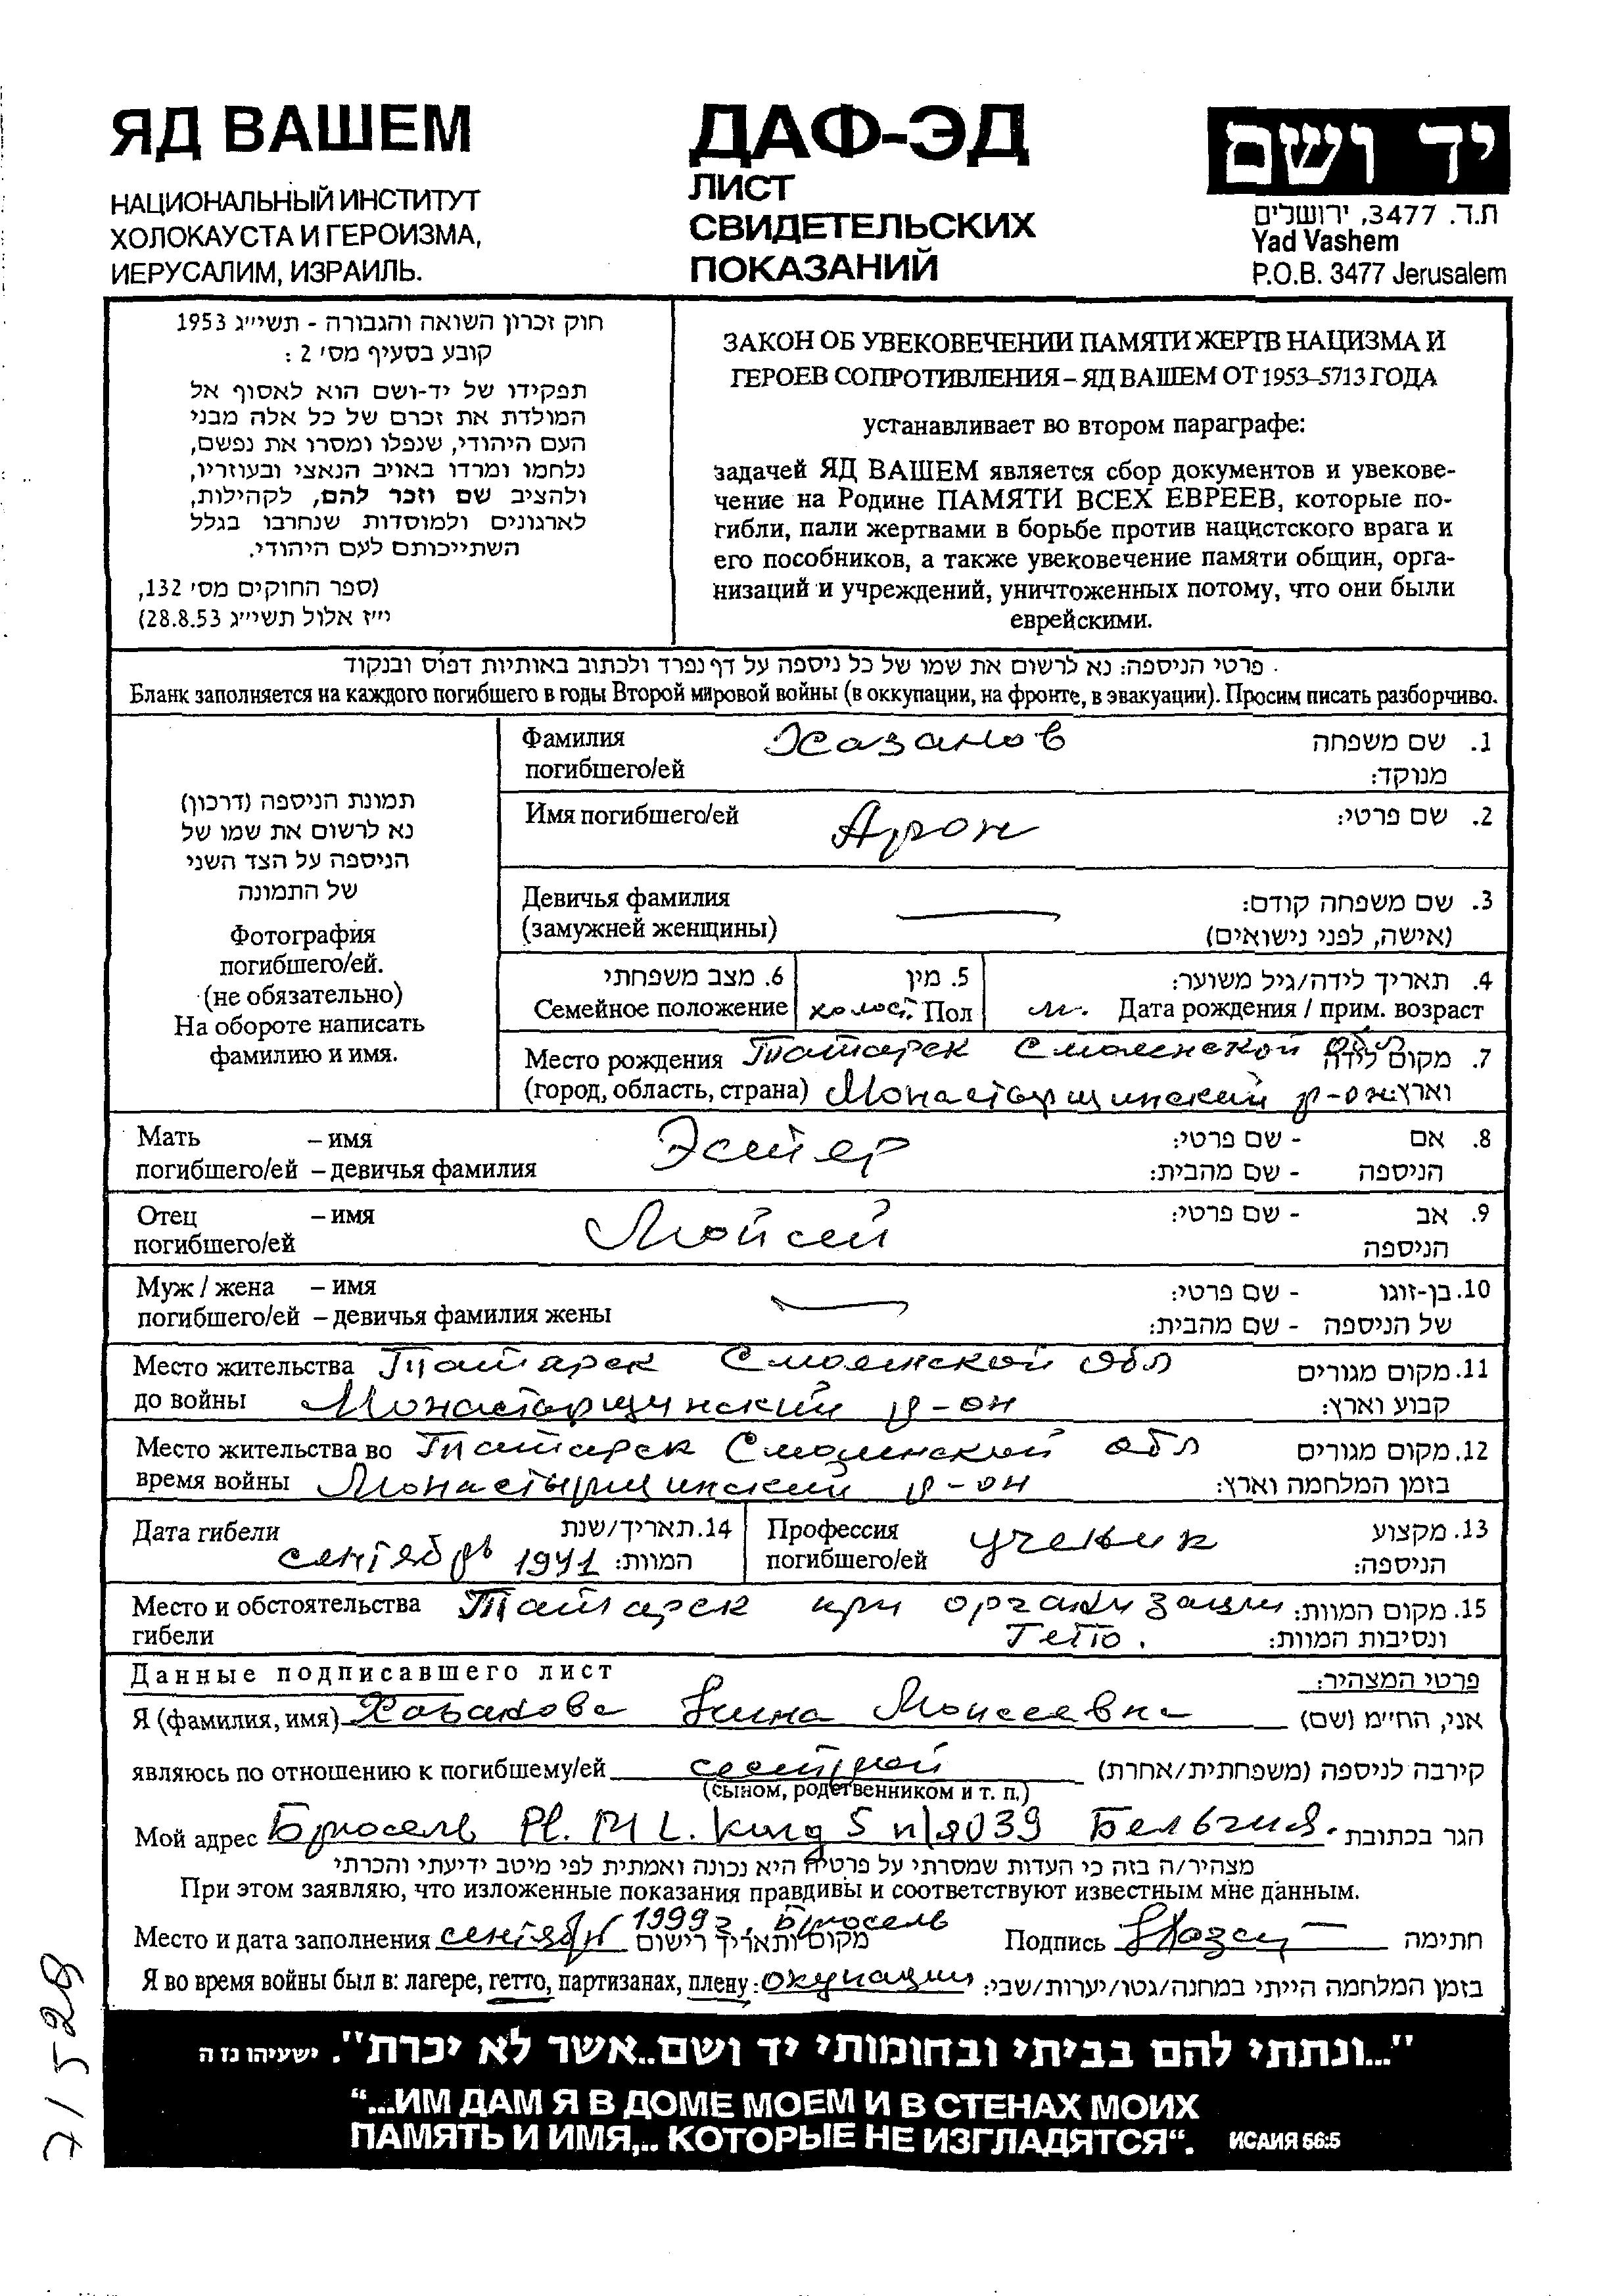 ЯД ВАШЕМ
НАЦИОНАЛЬНЫЙ ИНСТИТУТ
ХОЛОКАУСТА И ГЕРОИЗМА,
ИЕРУСАЛИМ, ИЗРАИЛЬ.
ДАФ-ЭД
ЛИСТ
СВИДЕТЕЛЬСКИХ
ПОКАЗАНИЙ
יד ושם
ת.ד. 3477, ירושלים
Yad Vashem
P.O.B. 3477 Jerusalem
חוק זכרון השואה והגבורה - תשי״ג 1953
קובע בסעיף מס׳ 2 :
תפקידו של יד-ושם הוא לאסוף אל
המולדת את זכרם של כל אלה מבני
העם היהודי, שנפלו ומסרו את נפשם,
נלחמו ומרדו באויב הנאצי ובעוזריו,
ולהציב שם וזכר להם, לקהילות,
לארגונים ולמוסדות שנחרבו בגלל
השתייכותם לעם היהודי.
(ספר החוקים מס׳ 132,
י״ז אלול תשי״ג 28.8.53)
ЗАКОН ОБ УВЕКОВЕЧЕНИИ ПАМЯТИ ЖЕРТВ НАЦИЗМА И
ГЕРОЕВ СОПРОТИВЛЕНИЯ – ЯД ВАШЕМ ОТ 1953–5713 ГОДА
устанавливает во втором параграфе:
задачей ЯД ВАШЕМ является сбор документов и увекове-
чение на Родине ПАМЯТИ ВСЕХ ЕВРЕЕВ, которые по-
гибли, пали жертвами в борьбе против нацистского врага и
его пособников, а также увековечение памяти общин, орга-
низаций и учреждений, уничтоженных потому, что они были
еврейскими.
פרטי הניספה: נא לרשום את שמו של כל ניספה על דף נפרד ולכתוב באותיות דפוס ובנקוד
Бланк заполняется на каждого погибшего в годы Второй мировой войны (в оккупации, на фронте, в эвакуации). Просим писать разборчиво.
תמונת הניספה (דרכון)
נא לרשום את שמו של
הניספה על הצד השני
של התמונה
Фотография
погибшего/ей.
(не обязательно)
На обороте написать
фамилию и имя.
Фамилия Хазанов 1. שם משפחה
погибшего/ей מנוקד:
Имя погибшего/ей Арон 2. שם פרטי:
Девичья фамилия 3. שם משפחה קודם:
(замужней женщины) (אישה, לפני נישואים)
6. מצב משפחתי 5. מין 4. תאריך לידה/גיל משוער:
Семейное положение холост. Пол м. Дата рождения / прим. возраст
Место рождения Татарск Смоленской обл 7. מקום לידה
(город, область, страна) Монастырщинский р-он וארץ:
Мать – имя Эстер - שם פרטי: 8. אם
погибшего/ей – девичья фамилия - שם מהבית: הניספה
Отец – имя Мойсей - שם פרטי: 9. אב
погибшего/ей הניספה
Муж / жена – имя - שם פרטי: 10. בן-זוגו
погибшего/ей – девичья фамилия жены - שם מהבית: של הניספה
Место жительства Татарск Смоленской обл 11. מקום מגורים
до войны Монасторщинский р-он קבוע וארץ:
Место жительства во Татарск Смоленской обл 12. מקום מגורים
время войны Монастырщинский р-он בזמן המלחמה וארץ:
Дата гибели 14. תאריך/שנת Профессия ученик 13. מקצוע
сентябрь 1941 המוות: погибшего/ей הניספה:
Место и обстоятельства Татарск при организации 15. מקום המוות:
гибели Гето. ונסיבות המוות:
Данные подписавшего лист פרטי המצהיר:
Я (фамилия, имя) Хазанова Нина Моисеевна אני, החי״מ (שם)
являюсь по отношению к погибшему/ей сестрой קירבה לניספה (משפחתית/אחרת)
(сыном, родственником и т. п.)
Мой адрес Брюсель Pl. M L. King 5 п/я 039 Бельгия. הגר בכתובת
מצהיר/ה בזה כי העדות שמסרתי על פרטיה היא נכונה ואמתית לפי מיטב ידיעתי והכרתי
При этом заявляю, что изложенные показания правдивы и соответствуют известным мне данным.
1999 г. Брюсель
Место и дата заполнения сентябрь מקום ותאריך רישום Подпись חתימה
Я во время войны был в: лагере, гетто, партизанах, плену: окупации בזמן המלחמה הייתי במחנה/גטו/יערות/שבי:
"...ונתתי להם בביתי ובחומותי יד ושם..אשר לא יכרת". ישעיהו נז ה
“...ИМ ДАМ Я В ДОМЕ МОЕМ И В СТЕНАХ МОИХ
ПАМЯТЬ И ИМЯ,.. КОТОРЫЕ НЕ ИЗГЛАДЯТСЯ“. ИСАИЯ 56:5
7/528